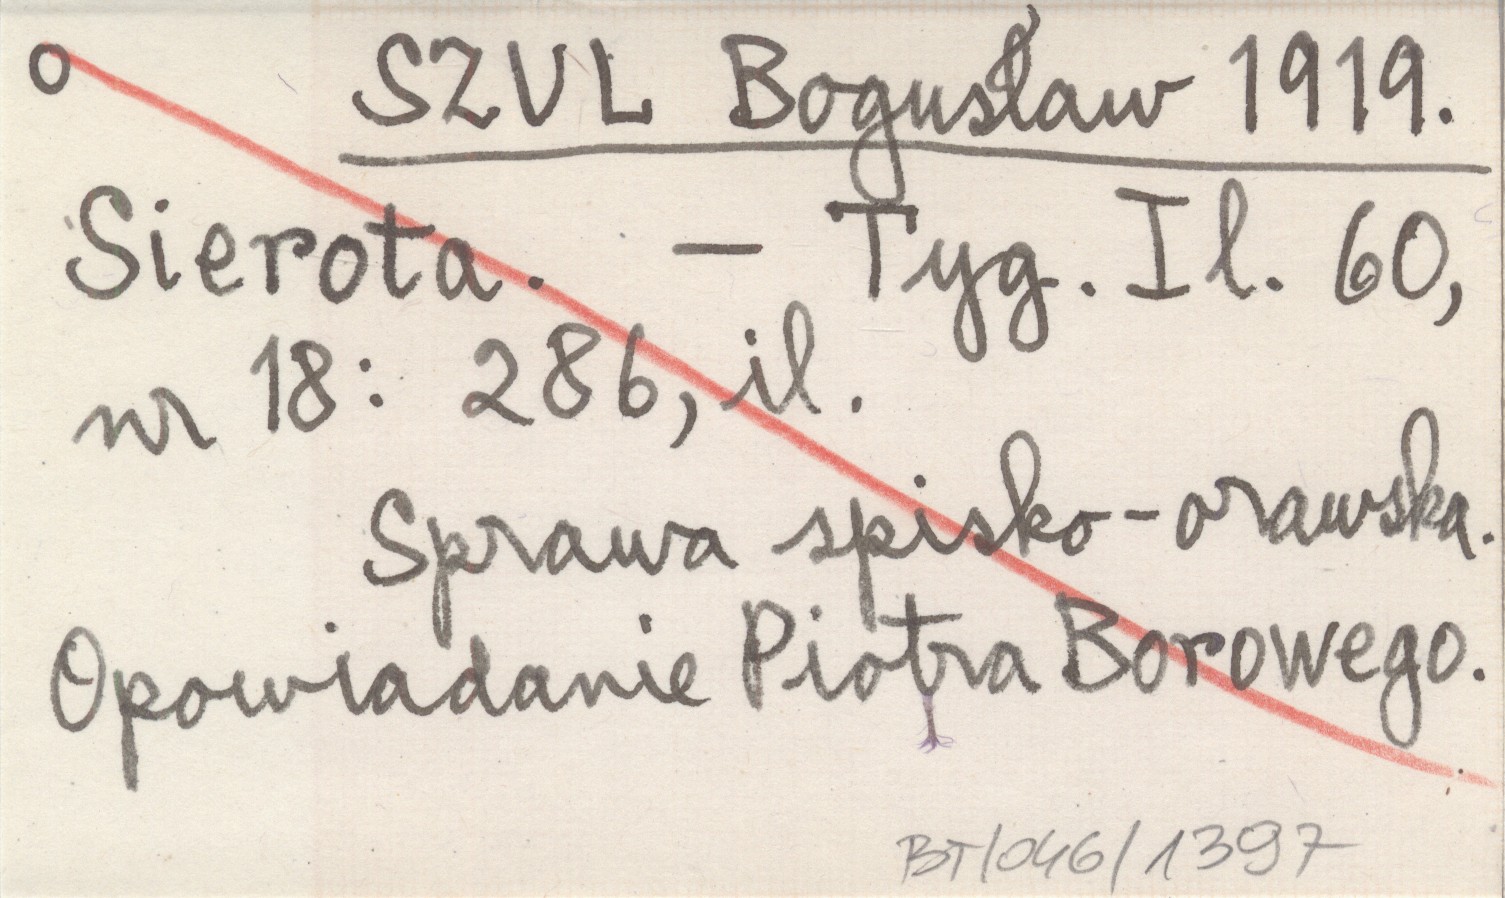 o SZUL Bogusław 1919.
Sierota. – Tyg. Il. 60,
nr 18: 286, il.
Sprawa spisko-orawska.
Opowiadanie Piotra Borowego.
BT/046/1397